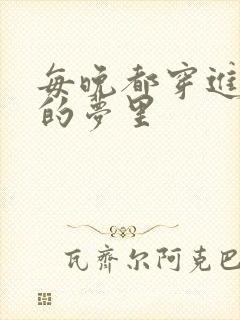 每晚都穿進
的夢里
瓦齊尔阿克巴